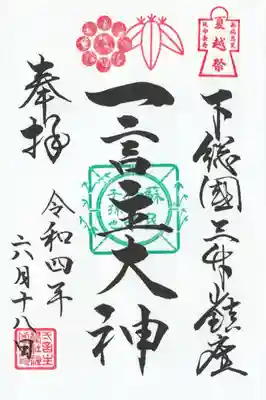 夏越祭
下総國三竹山鎮座
一言主大神
奉拝
令和四年
六月十八日